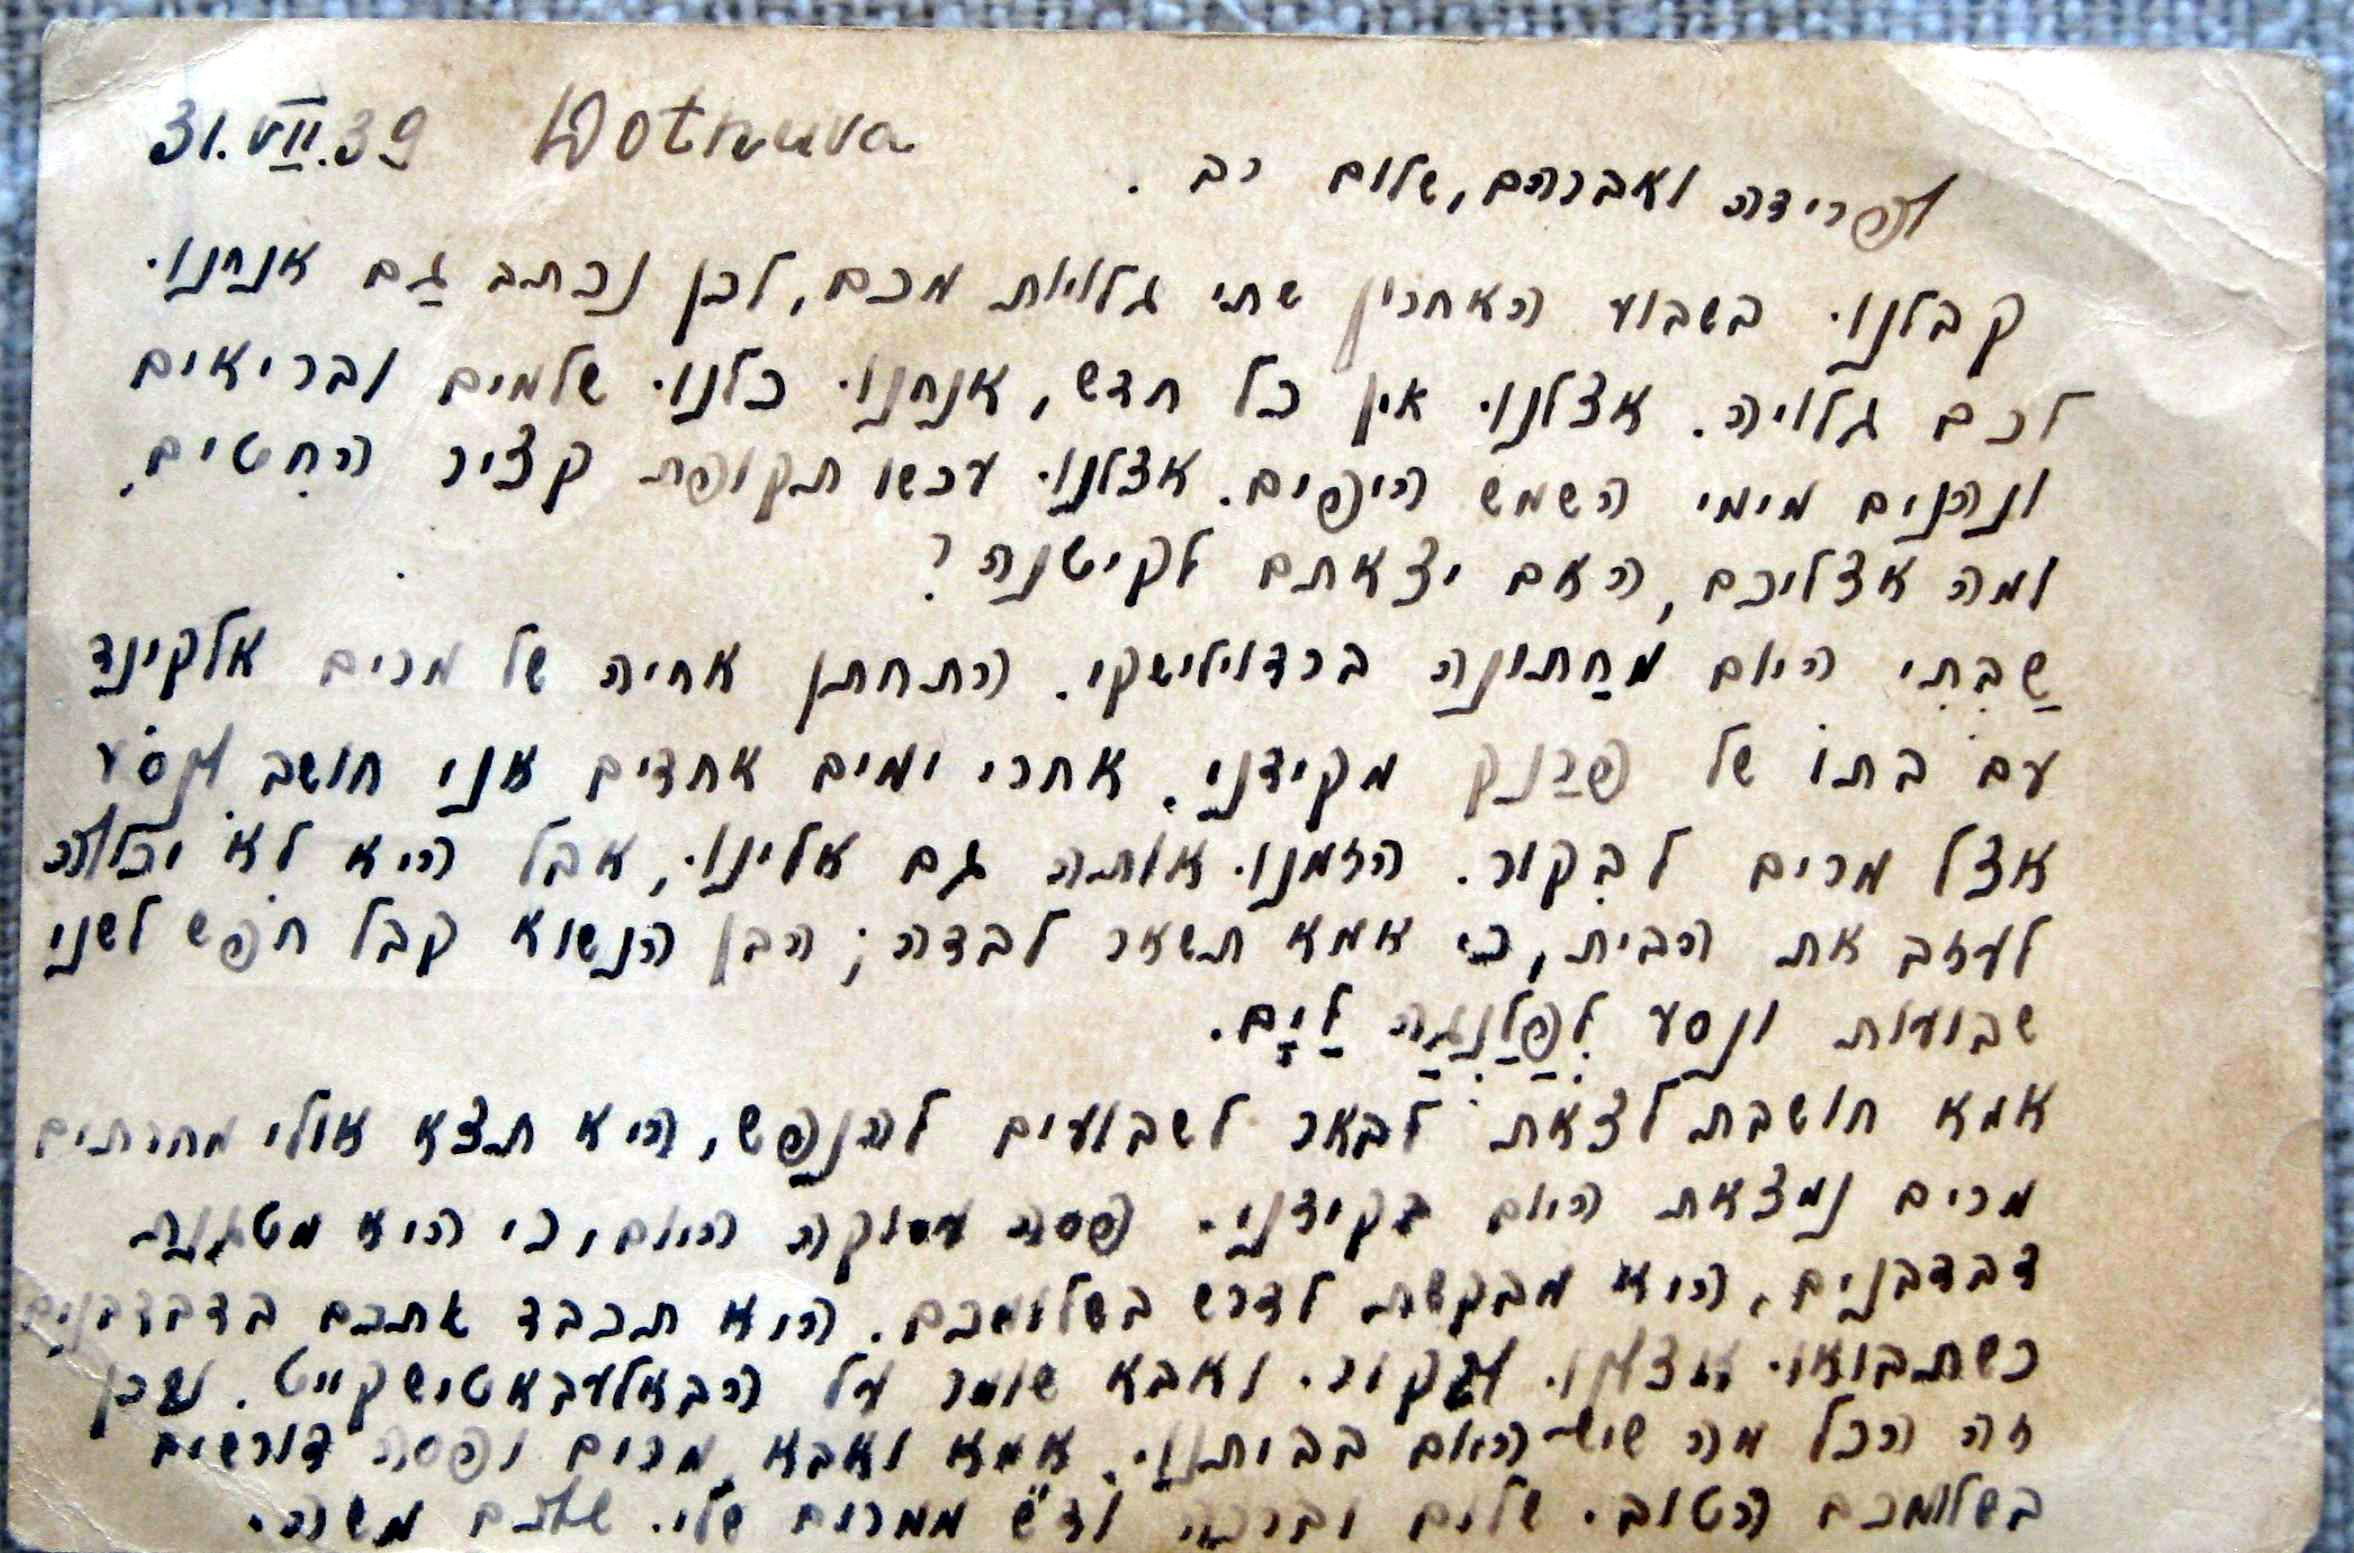 31.VII.39 Dotnuva
לפרידה ואברהם, שלום רב.
קבלנו בשבוע האחרון שתי גלויות מכם, לכן נכתב גַם אנחנו
לכם גלויה. אצלנו אין כל חדש, אנחנו כלנו שלמים ובריאים
ונהנים מימי השמש היפים. אצלנו עכשו תקופת קציר החִטים,
ומה אצליכם, האם יצאתם לקיטנה?
שַבְתִּי היום מחַתונה ברדוילישקי. התחתן אחיה של מרים אלקינד
עם בתו של פרַנק מקידני. אחרי ימים אחדים אני חושב לנסֹע
אצל מרים לבִקור. הזמנו אותה גם אלינו, אבל היא לא יכולה
לעזב את הבית, כי אמא תשאר לבדה; הבן הנשוא קבל חֹפש לשני
שבועות ונסע לְפַלַנְגַה לַיָם.
אמא חושבת לצאת לבאר לשבועים להנפש, היא תצא אולי מחרתים
מרים נמצאת היום בקידני. פסה עסוקה היום, כי היא מטגנת
דבדבנים, היא מבקשת לדרש בשלומכם. היא תכבד אתכם בדבדבנים
כשתבואו אצלנו לבקור. ואבא שומר על הבאלעבאטישקייט.
זה הכל מה שיש היום בביתנו. אמא ואבא, מרים ופסה דורשים
בשלומכם הטוב. שלום וברכה וד"ש ממרים שלי. שלכם משה.